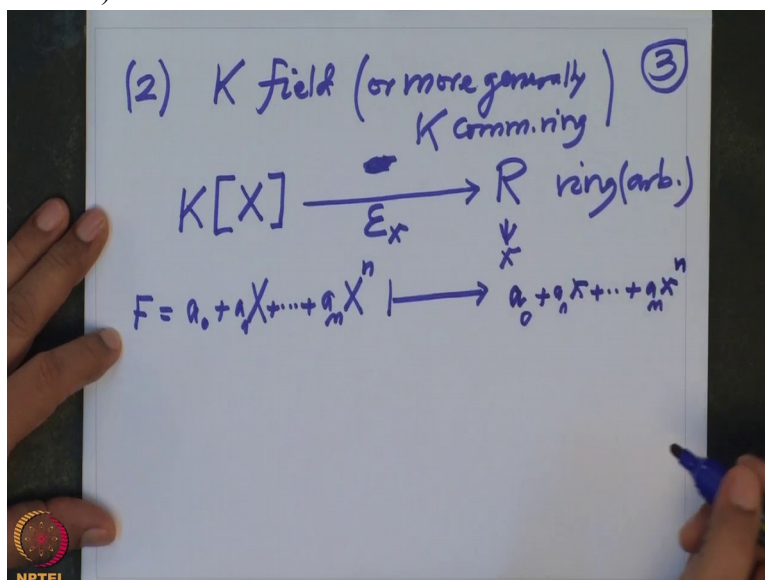 (2) K field (or more generally K comm. ring) ③
K[X] ⟶ R ring (arb.)
ε_x x
F = a_0 + a_1 X + ... + a_n X^n ⟼ a_0 + a_1 x + ... + a_n x^n
NPTEL